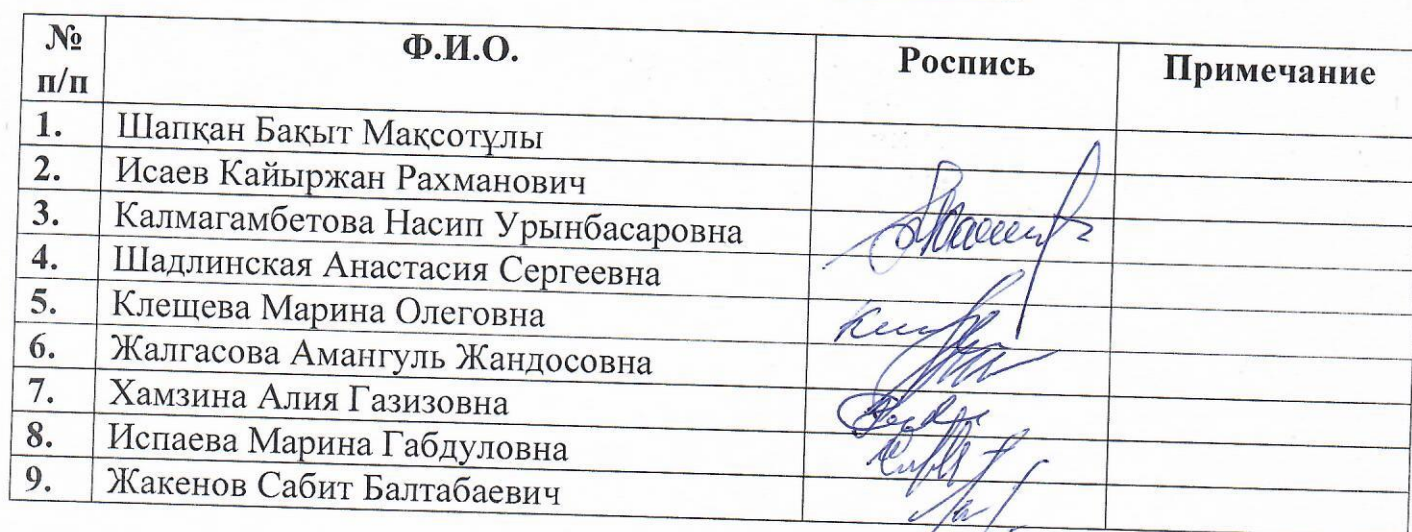 № п/п Ф.И.О. Роспись Примечание
1. Шапқан Бақыт Мақсотұлы
2. Исаев Кайыржан Рахманович
3. Калмагамбетова Насип Урынбасаровна
4. Шадлинская Анастасия Сергеевна
5. Клещева Марина Олеговна
6. Жалгасова Амангуль Жандосовна
7. Хамзина Алия Газизовна
8. Испаева Марина Габдуловна
9. Жакенов Сабит Балтабаевич